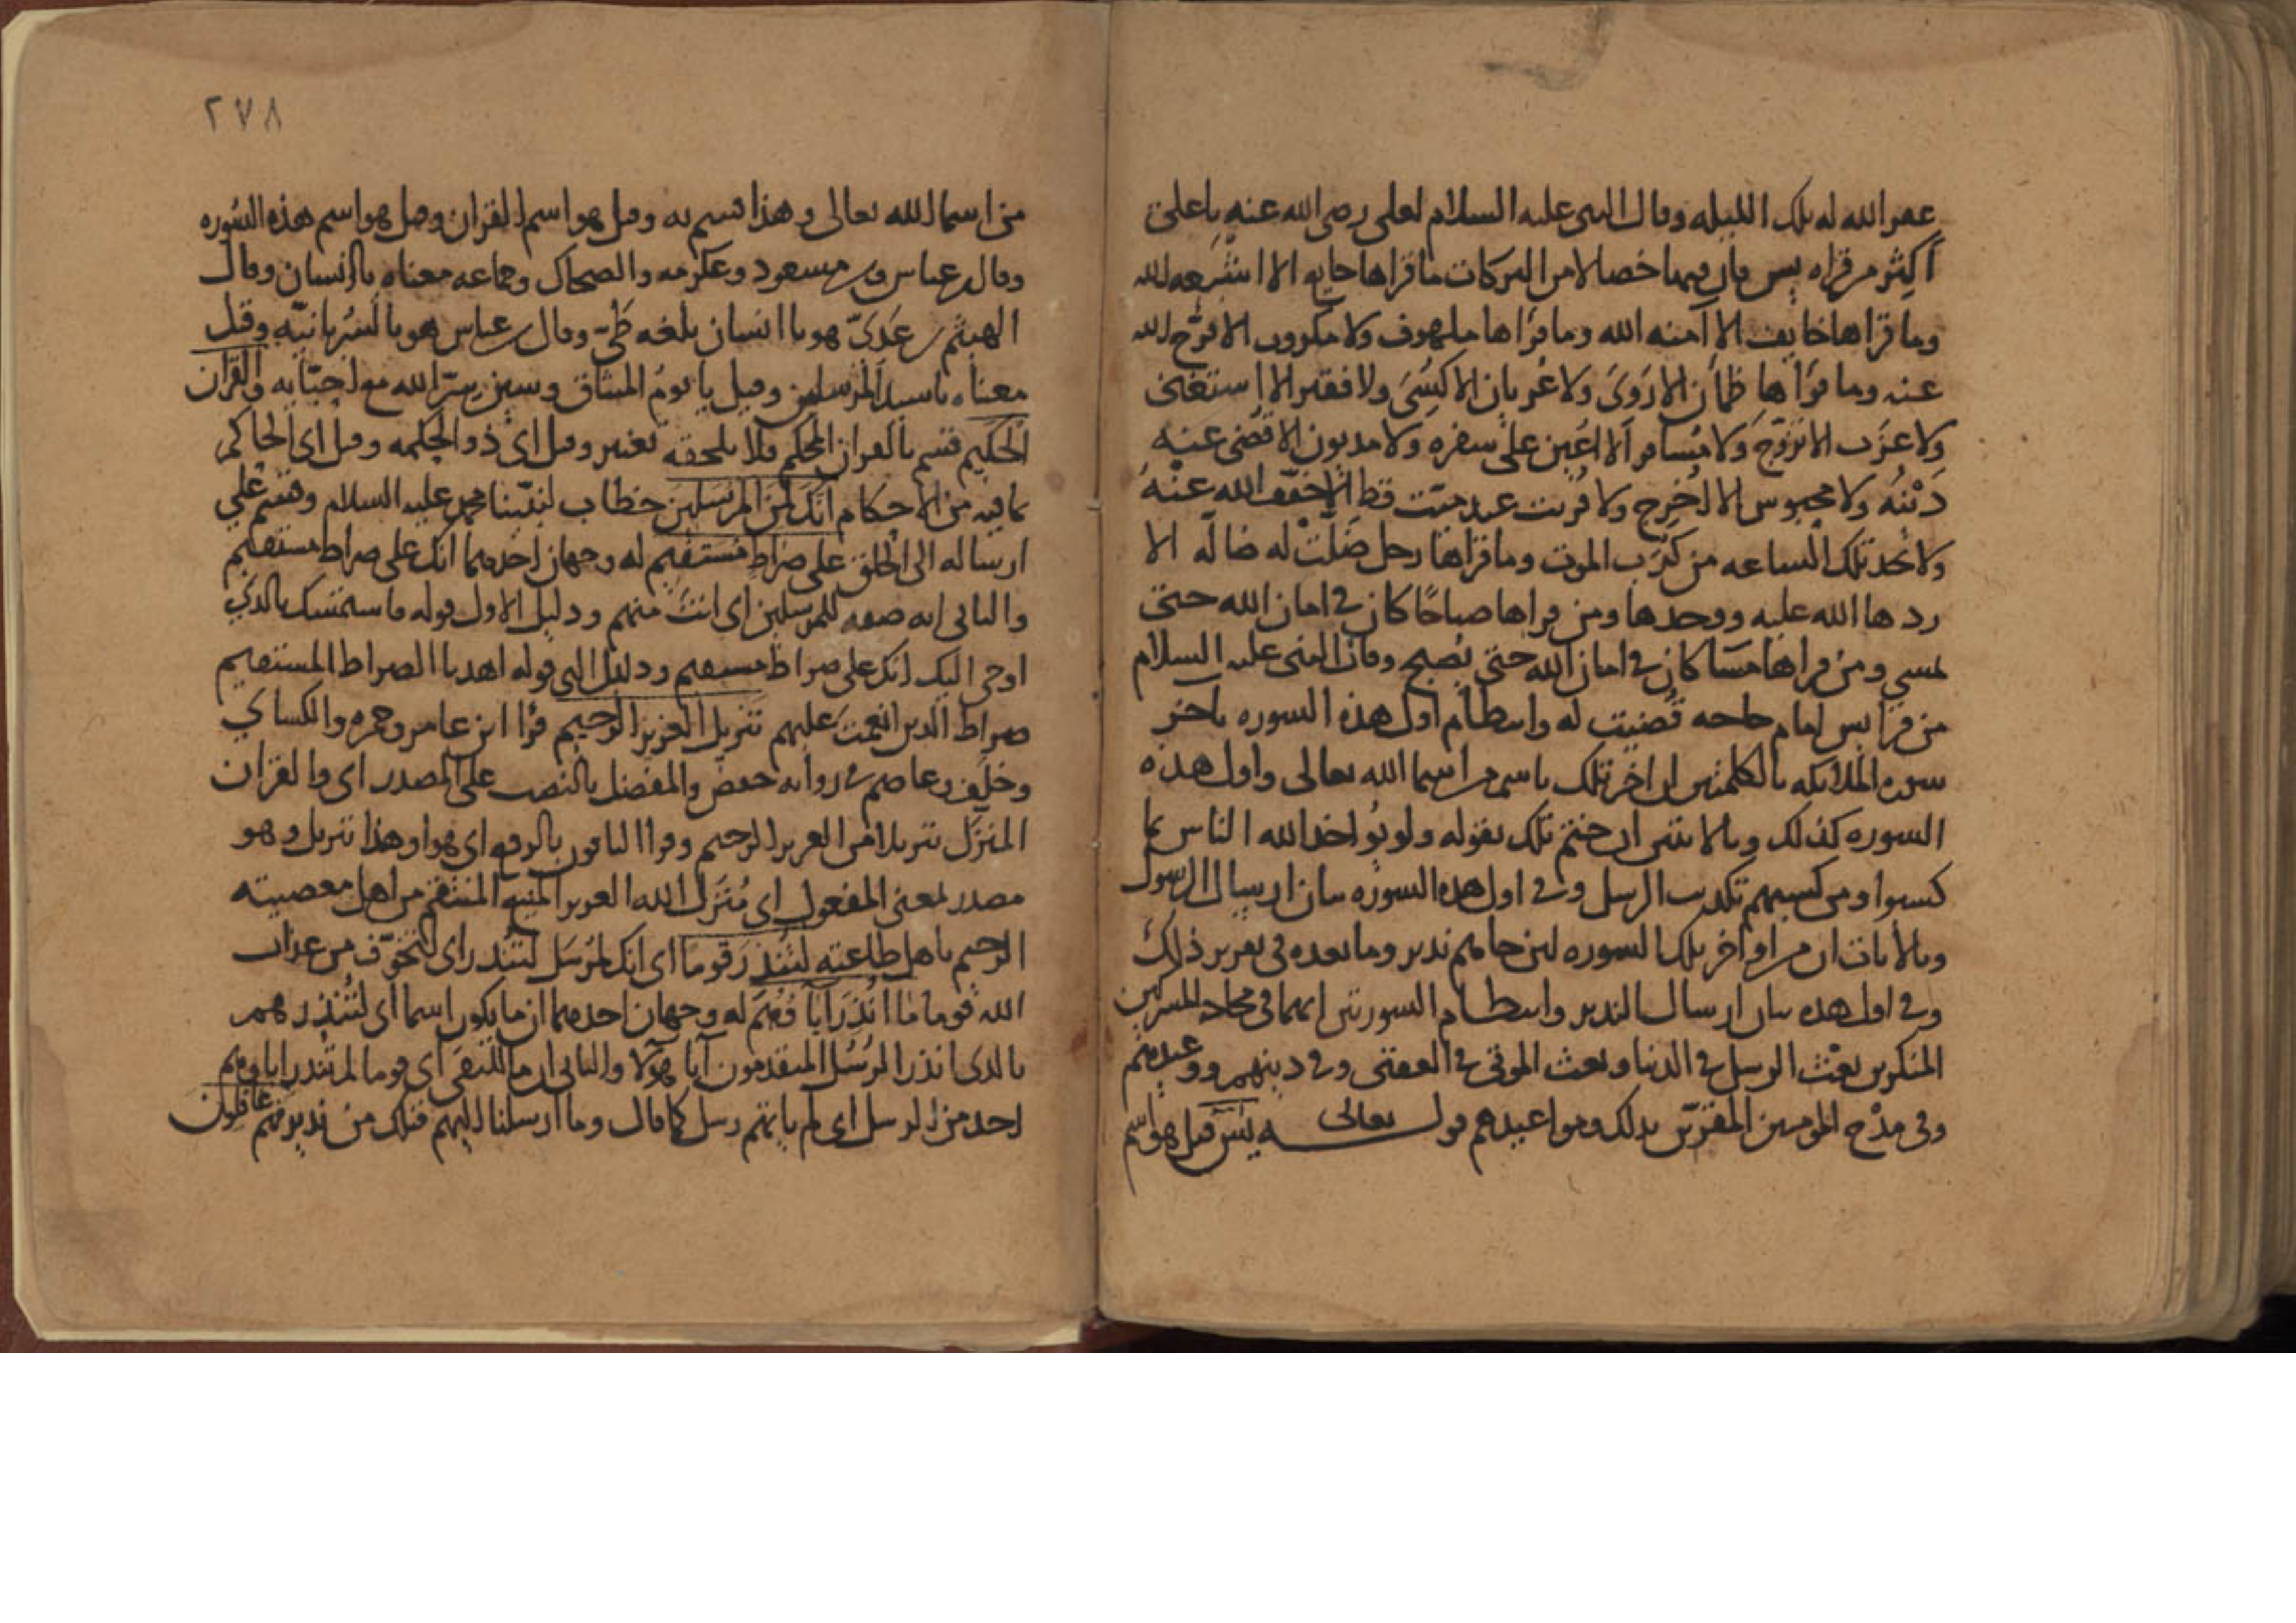 غفر الله له تلك الليله وقال النبي عليه السلام لعلي رضي الله عنه يا علي
أكثر من قراه يس فان فيها خصالا من البركات ما قراها جايع الا اشبعه الله
وما قراها خايف الا آمنه الله وما قراها ملهوف ولا مكروب الا فرّج الله
عنه وما قرأها ظمآن الا رَوِىَ ولا عُريان الا كُسِىَ ولا فقير الا استغنى
ولا عزَب الا تزوّج ولا مُسافر الا اُعين على سفره ولا مديون الا قُضى عنه
دَيْنهُ ولا محبوس الا اُخرج ولا قُريت عند ميّت قط الا خفّف الله عنْهُ
ولا تحد تلك الساعه من كُرَب الموت وما قراها رجل ضلّتْ له ضالّه الا
ردها الله عليه ووجدها ومن قراها صباحًا كان في امان الله حتى
يمسي ومن قراها مسَاً كان في امان الله حتى يُصبح وقال النبي عليه السلام
من قرا يس امام حاجه قُضيت له وانتظام اول هذه السوره باخر
سوره الملايكه بالكلمتين ان اخر تلك باسم من اسما الله تعالى واول هذه
السوره كذلك وبالايتين ان ختم تلك بقوله ولو يُواخذ الله الناس بما
كسبوا ومن كسبهم تكذيب الرسل وفي اول هذه السوره بيان ارسال الرسول
وبالايات ان من اواخر تلك السوره لين جاهم نذير وما بعده في تقرير ذلك
وفي اول هذه بيان ارسال النذير وانتظام السورتين انهما في محاجه المشركين
المنكرين بعْث الرسل في الدنيا وبعث الموتى في العقبى وفي دينهم ووعيدهم
وفي مدْح المومنين المقرّين بذلك ومواعيدهم قوله تعالى يسَ قيل هو اسم
٢٧٨
من اسما الله تعالى وهذا قسم به وقيل هو اسم القران وقيل هو اسم هذه السُوره
وقال بن عباس وبن مسعود وعكرمه والضحاك وجماعه معناه يا انسان وقال
الهيثم بن عَدىّ هو يا انسان بلغه طىّ وقال بن عباس هو بالسُريانيّه وقيل
معناه يا سيد المرسلين وقيل يا يومُ الميثاق وسين سِرّ الله مع احبّايه والقران
الحكيم قسم بالقران المحكم فلا يلحقه تغيير وقيل اى ذو الحكمه وقيل اى الحاكم
بما فيه من الاحكام انّكَ لمن المرسَلين خطاب لنبيّنا محمد عليه السلام وقسَم على
ارساله الى الخلق على صراطٍ مُستقيم له وجهان احدهما انك على صراط مستقيم
والثاني انه صفه للمرسلين اى انتَ منهم ودليل الاول قوله فاستمسك بالذي
اوحى اليك انك على صراط مستقيم ودليل الثاني قوله اهدنا الصراط المستقيم
صراط الذين انعمتَ عليهم تنزيل العزيز الرحيم قرا ابن عامر وحمزه والكساي
وخلَف وعاصم في روايه حفص والمفضل بالنصب على المصدر اى والقران
المنزَل تنزيلا من العزيز الرحيم وقرا الباقون بالرفع اى هو او هذا تنزيل وهو
مصدر لمعنى المفعول اى مُنَزل الله العزيز المنيع المنتقم من اهل معصيته
الرحيم باهل طاعته لتُنذرَ قوما اى انك لمُرسَل لتُنذر اى لتخوّف من عذاب
الله قوما ما اُنذِرَ آباوُهُم له وجهان احدهما ان ما يكون اسما اى لتُنذرهم
بالذي انذر الرُسُل المتقدمون آبا هولا والثاني ان ما للنفى اى قوما لم تُنذر اباوهم
احد من الرسل اى لم ياتهم رسل كما قال وما ارسلنا اليهم قبلك من نذير فهم غافلون